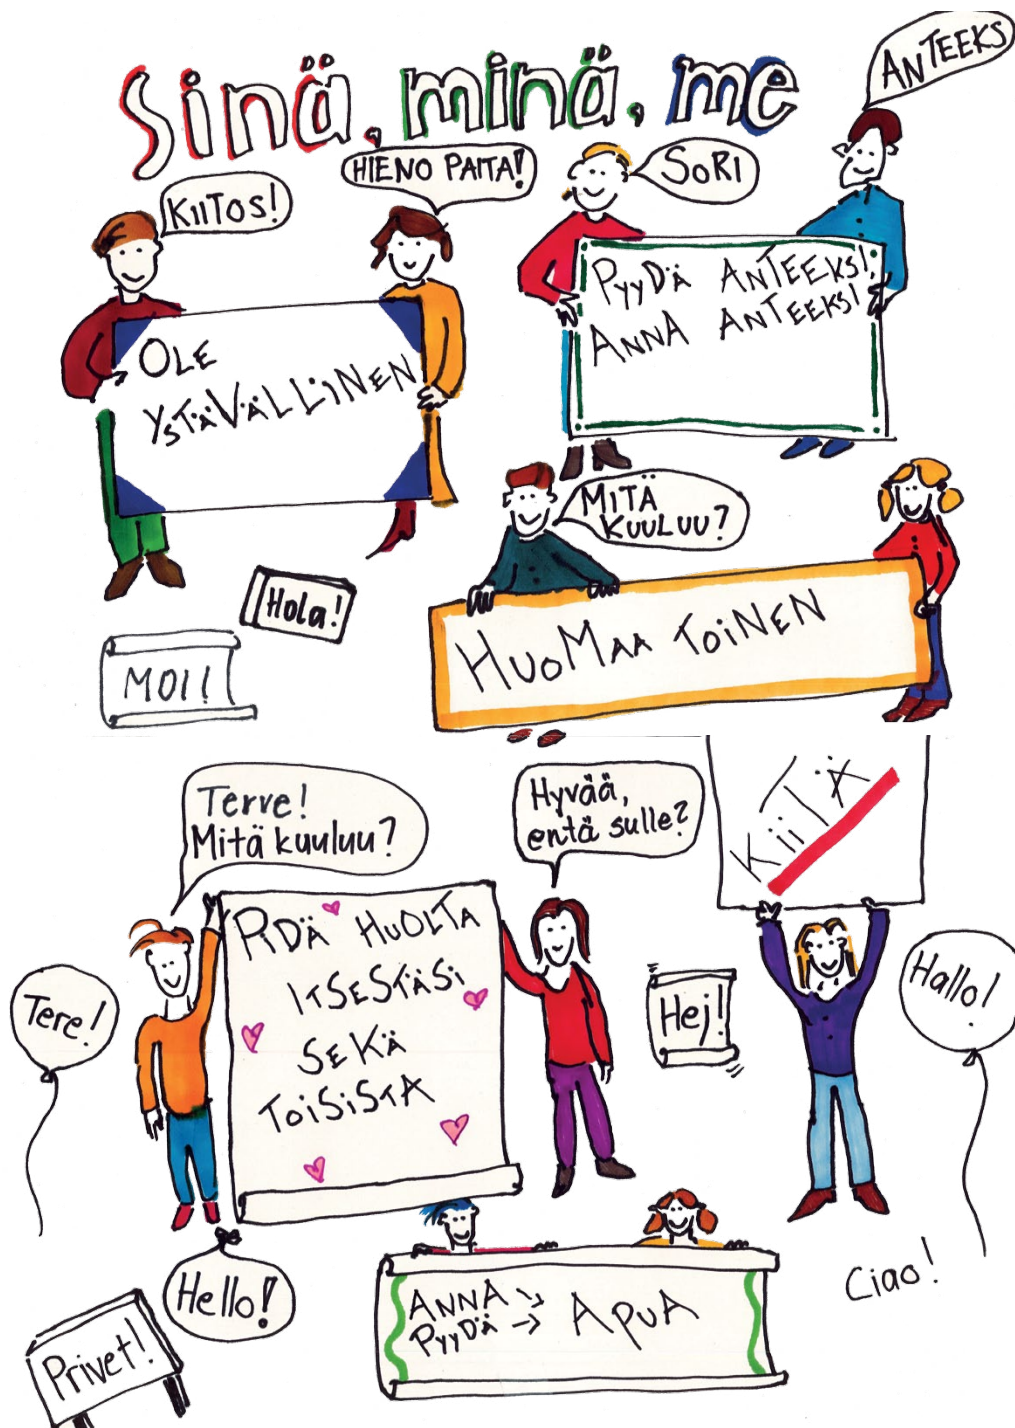 Sinä, minä, me
ANTEEKS
HIENO PAITA!
KIITOS!
SORI
OLE
YSTÄVÄLLINEN
PYYDÄ ANTEEKSI!
ANNA ANTEEKSI!
MITÄ
KUULUU?
HUOMAA TOINEN
Hola!
MOI!
Terve!
Mitä kuuluu?
Hyvää,
entä sulle?
KiiTÄ
PIDÄ HUOLTA
ITSESTÄSI
SEKÄ
TOISISTA
Tere!
Hej!
Hallo!
Hello!
ANNA →
PYYDÄ → APUA
Ciao!
Privet!